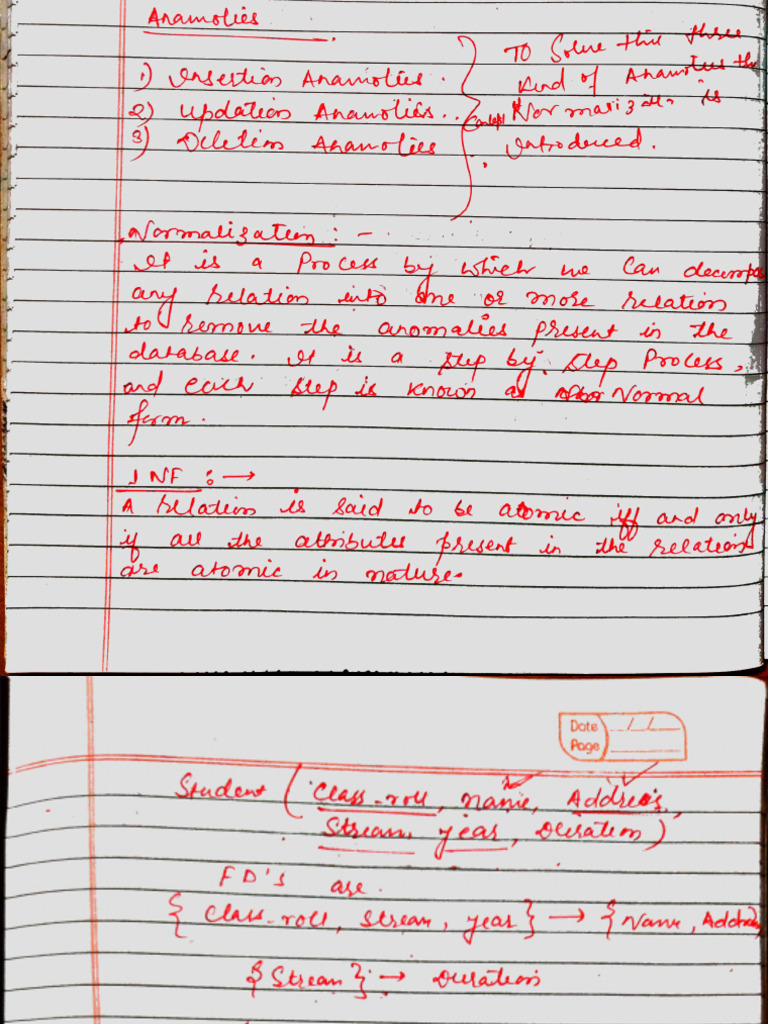 Anamolies
1) Insertion Anamolies.
2) Updation Anamolies..
3) Deletion Anamolies
To Solve this three
kind of Anamolies the
Concept Normalization is
introduced.
Normalization : -
It is a Process by which we can decompos
any relation into one or more relation
to remove the anomalies present in the
database. It is a step by step Process,
and each step is known as Normal
form.
1 NF : →
A relation is said to be atomic iff and only
if all the attributes present in the relation
are atomic in nature.
Date / /
Page
Student ( Class_roll, Name, Address,
Stream, year, Duration )
FD's are.
{ Class_roll, Stream, year } → { Name, Address
{ Stream } → Duration